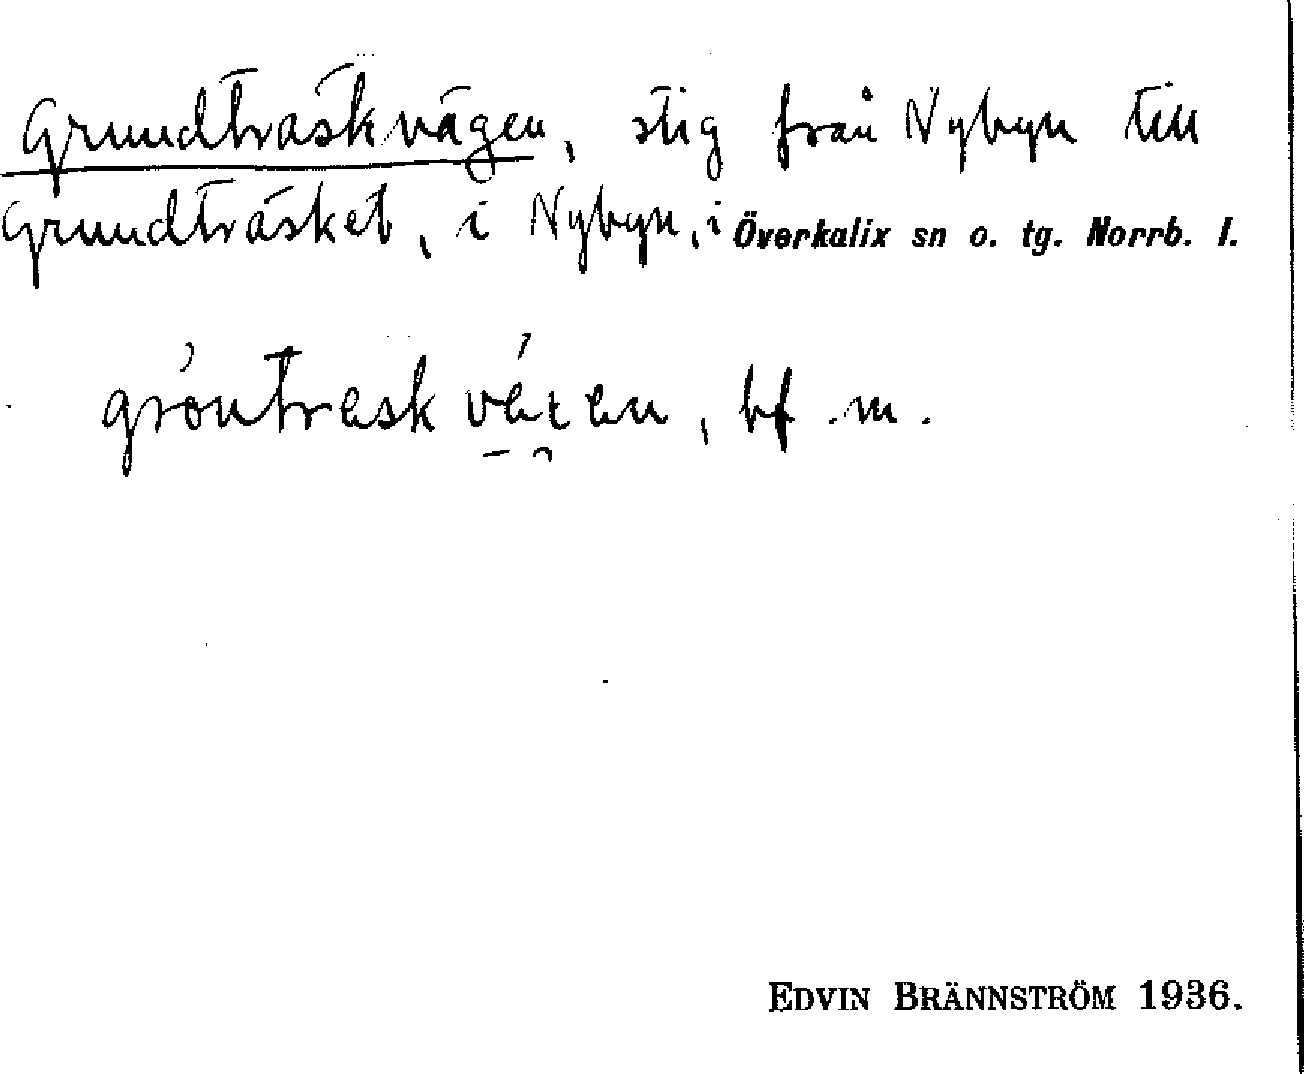 Grundträskvägen, stig från Nybyn till
Grundträsket, i Nybyn, i Överkalix sn o. tg. Norrb. l.
bf. m.
EDVIN BRÄNNSTRÖM 1936.